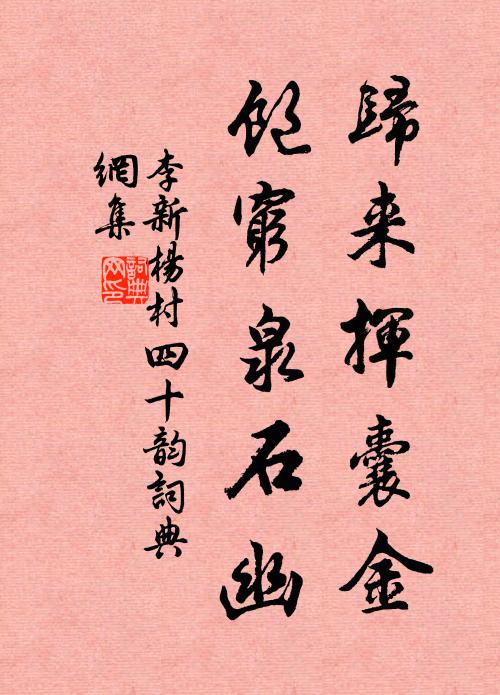 歸来揮囊金
飽窮泉石幽
李新楊村四十韵詞典
網集
詞典網印